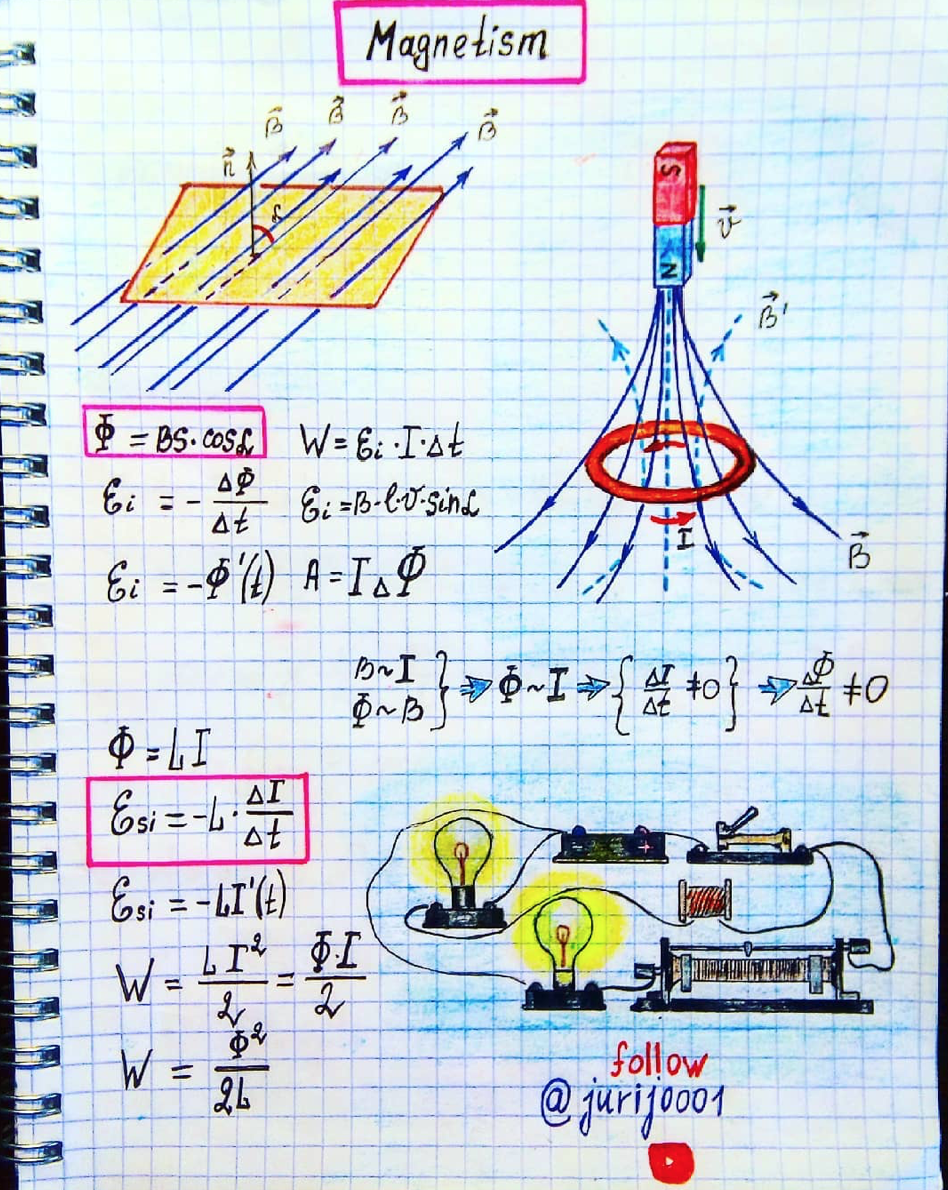 Magnetism
B⃗ B⃗ B⃗ B⃗
n⃗
α
S
N
v⃗
B⃗'
I
B⃗
Φ = BS·cosα
W = Ɛi·I·Δt
Ɛi = - ΔΦ/Δt
Ɛi = B·l·v·sinα
Ɛi = -Φ'(t)
A = IΔΦ
B~I
Φ~B } ⇒ Φ~I ⇒ { ΔI/Δt ≠0 } ⇒ ΔΦ/Δt ≠0
Φ = LI
Ɛsi = -L· ΔI/Δt
Ɛsi = -LI'(t)
W = LI²/2 = Φ·I/2
W = Φ²/2L
- +
follow
@jurij0001